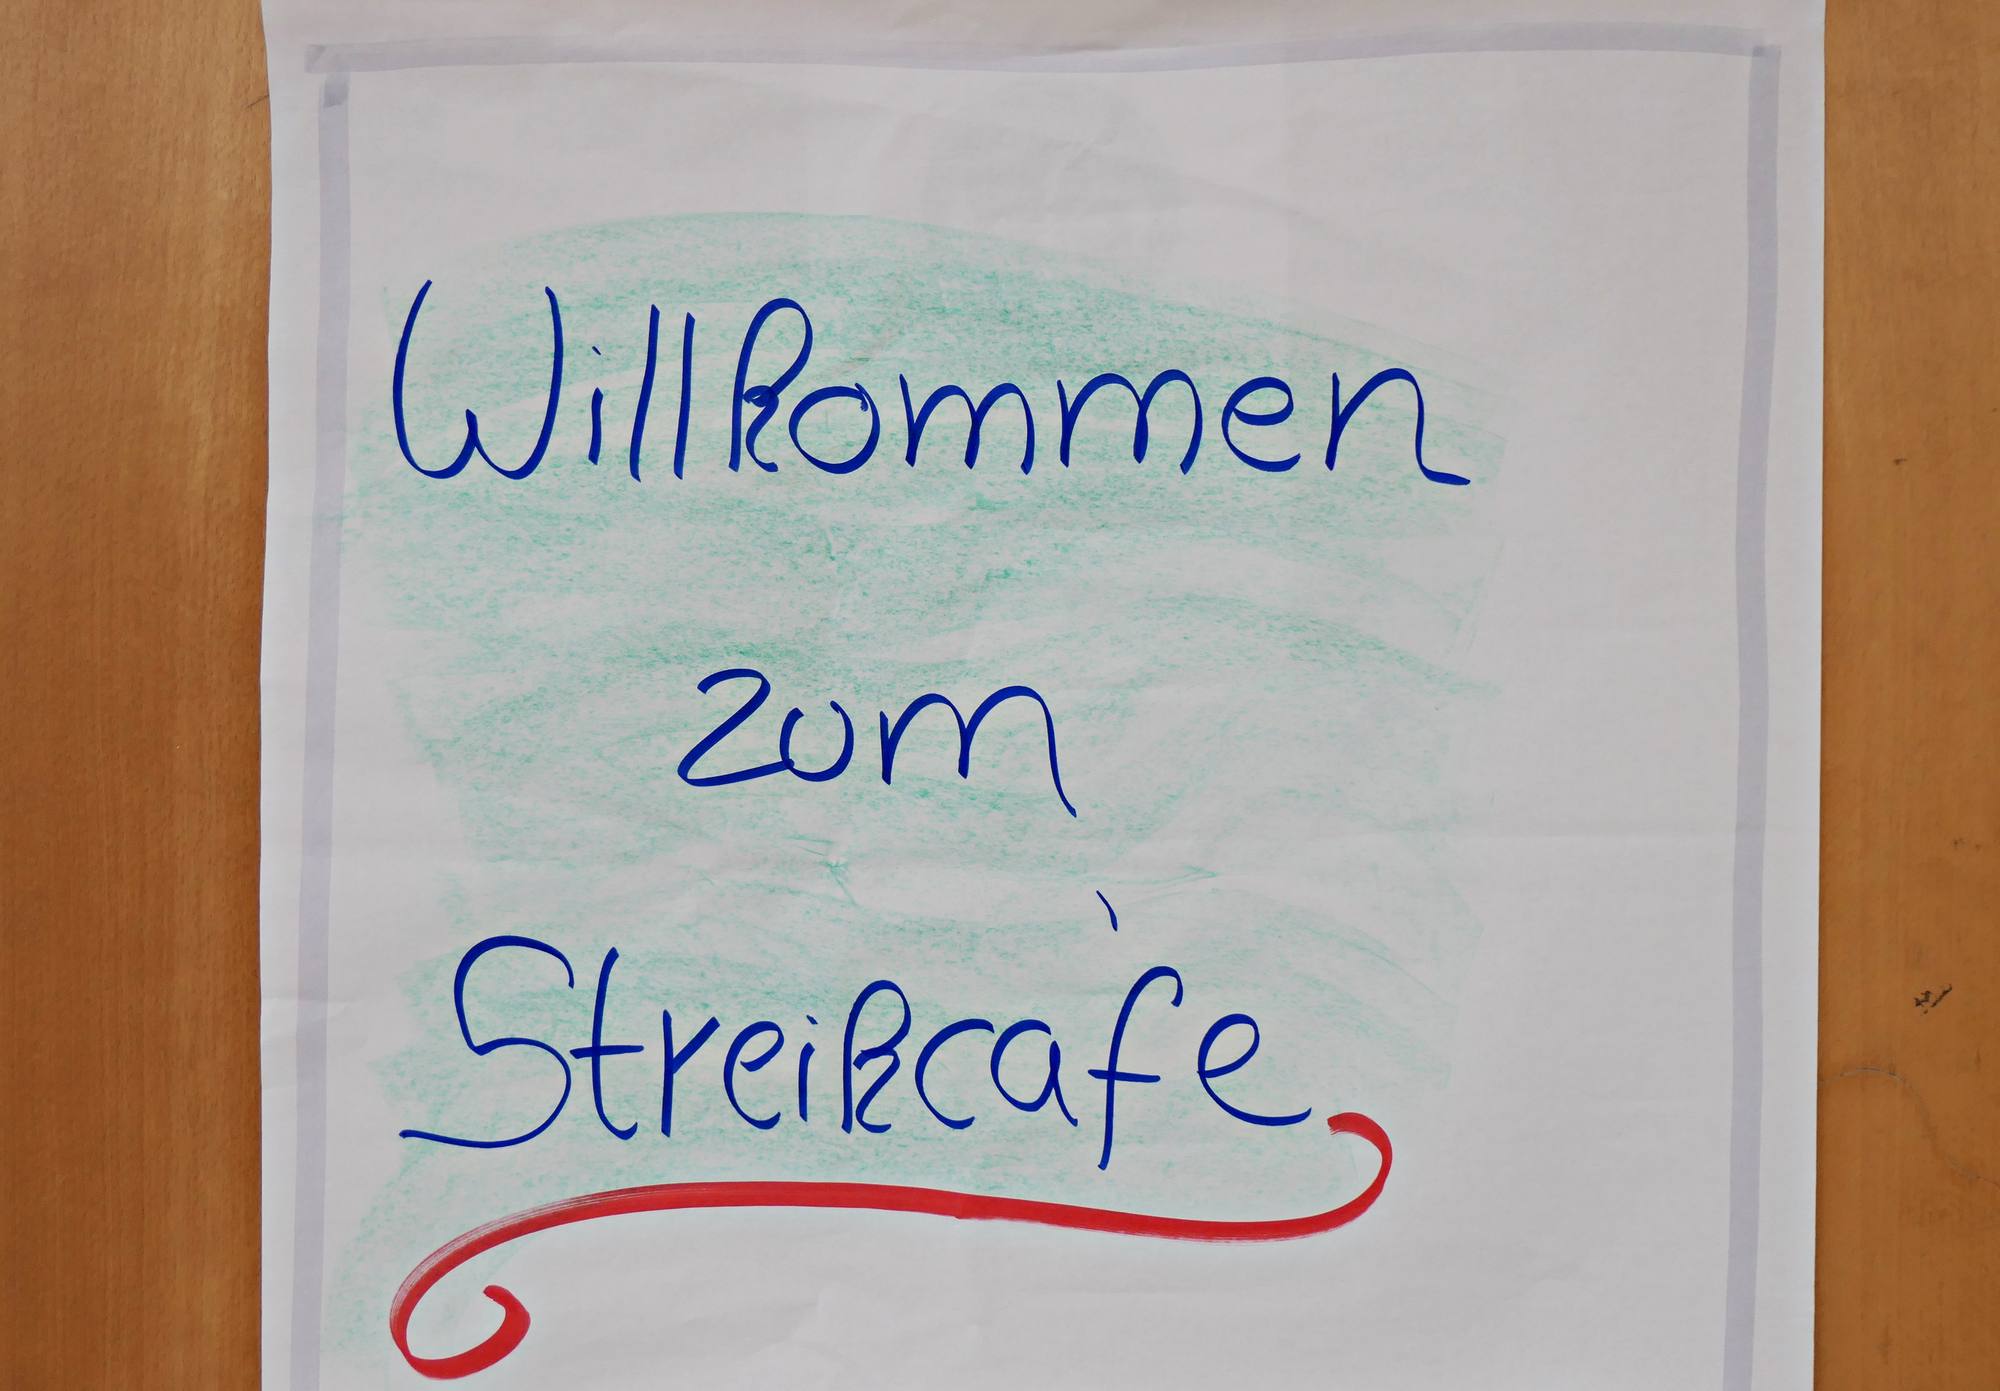 Willkommen
zum
Streikcàfe